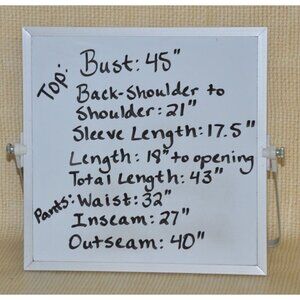 Top: Bust: 45"
Back-Shoulder to
Shoulder: 21"
Sleeve Length: 17.5"
Length: 18" to opening
Total Length: 43"
Pants: Waist: 32"
Inseam: 27"
Outseam: 40"